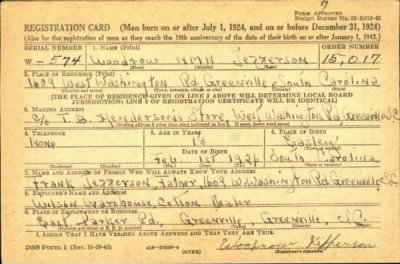 7
FORM APPROVED
REGISTRATION CARD (Men born on or after July 1, 1924, and on or before December 31, 1924)
(Also for the registration of men as they reach the 18th anniversary of the date of their birth on or after January 1, 1943.)
SERIAL NUMBER 1. NAME (Print) ORDER NUMBER
W-574 Woodrow NMN Jefferson 15,017
2. PLACE OF RESIDENCE (Print)
1609 West Washington Rd. Greenville South Carolina
[THE PLACE OF RESIDENCE GIVEN ON LINE 2 ABOVE WILL DETERMINE LOCAL BOARD
JURISDICTION; LINE 2 OF REGISTRATION CERTIFICATE WILL BE IDENTICAL]
3. MAILING ADDRESS
c/o T.B. Hendersons Store, West Washington Rd Greenville S.C.
4. TELEPHONE 5. AGE IN YEARS 6. PLACE OF BIRTH
None 18 Easley
DATE OF BIRTH
Feb. 1st South Carolina
7. NAME AND ADDRESS OF PERSON WHO WILL ALWAYS KNOW YOUR ADDRESS
Frank Jefferson, father, 1609 W. Washington Rd Greenville S.C.
8. EMPLOYER'S NAME AND ADDRESS
Wilson Warehouse, Cotton Dealer
9. PLACE OF EMPLOYMENT OR BUSINESS
East Parker Rd., Greenville, Greenville, S.C.
I AFFIRM THAT I HAVE VERIFIED ABOVE ANSWERS AND THAT THEY ARE TRUE.
DSS Form 1 Woodrow Jefferson
(Registrant's signature)